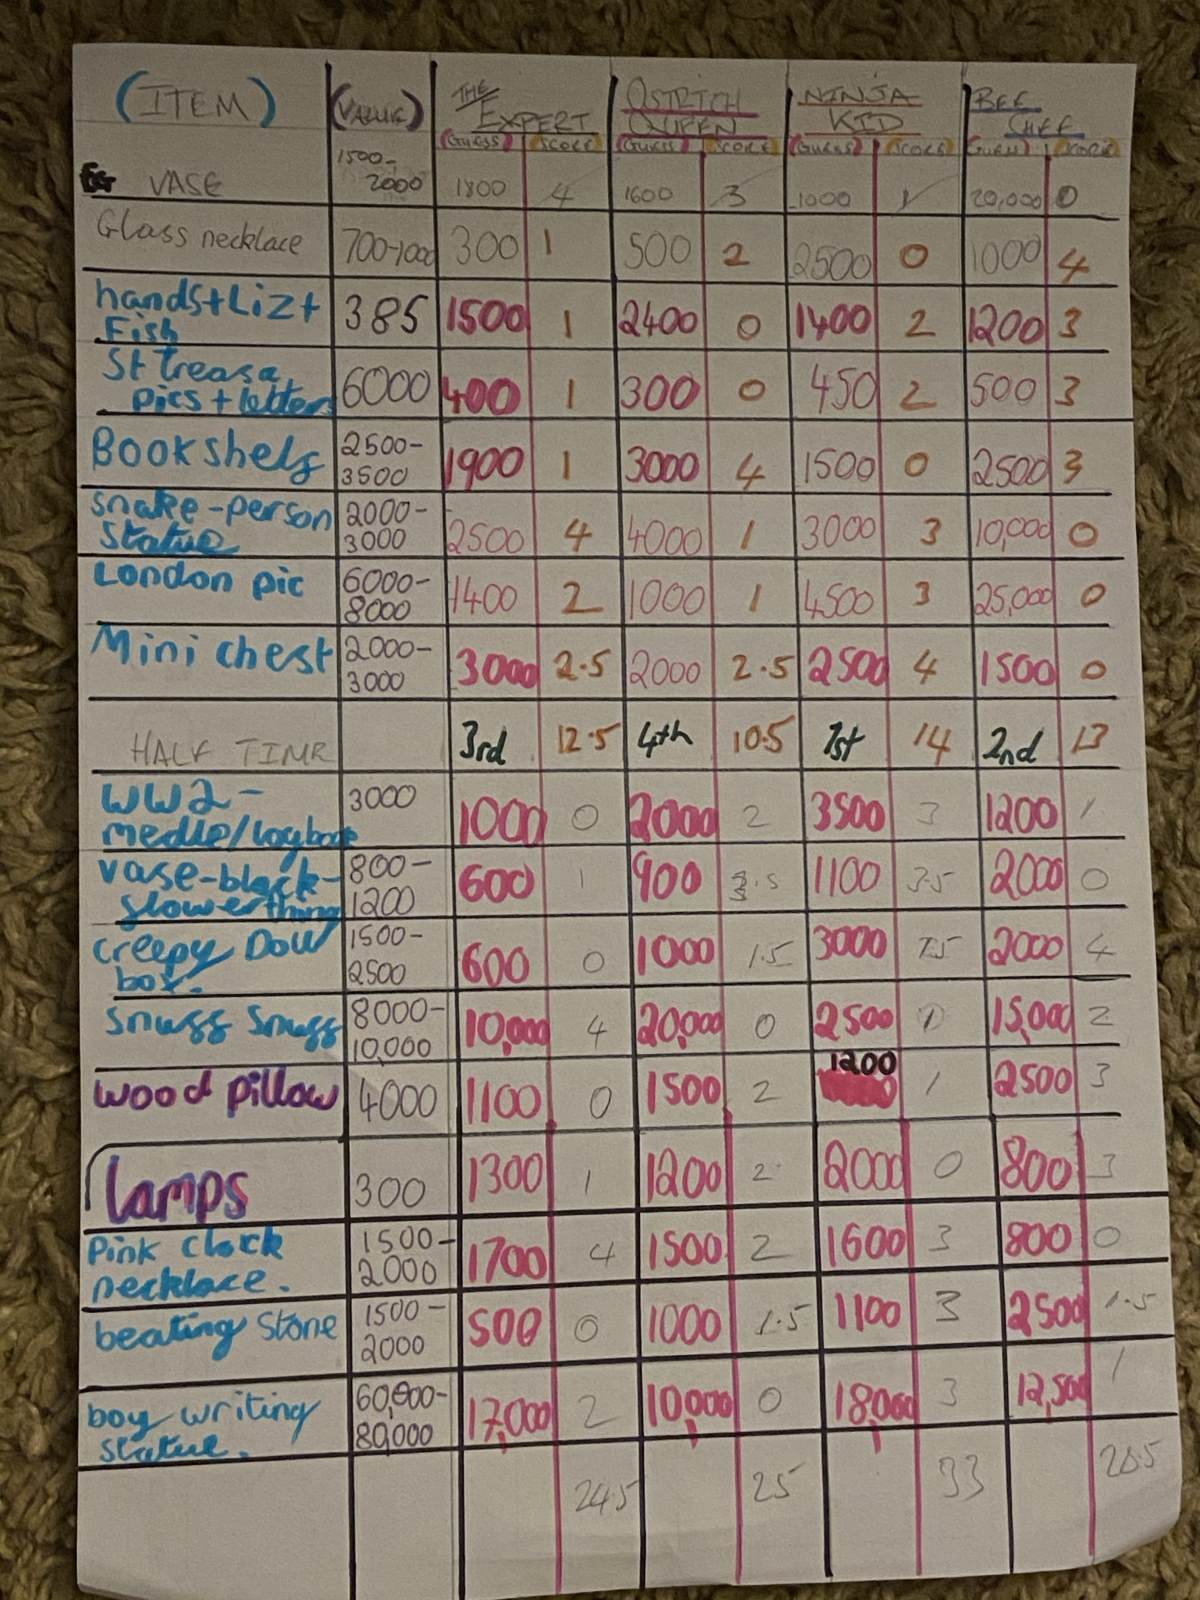 (ITEM) (VALUE) THE EXPERT OSTRICH QUEEN NINJA KID BEE CHEF
(GUESS) SCORE (GUESS) SCORE (GUESS) SCORE (GUESS) SCORE
VASE 1500-2000 1800 4 1600 3 1000 1 20,000 0
Glass necklace 700-1000 300 1 500 2 2500 0 1000 4
hands+Liz+ Fish 385 1500 1 2400 0 1400 2 1200 3
St treasa pics+letters 6000 400 1 300 0 450 2 500 3
Book shelf 2500-3500 1900 1 3000 4 1500 0 2500 3
snake-person statue 2000-3000 2500 4 4000 1 3000 3 10,000 0
London pic 6000-8000 1400 2 1000 1 4500 3 25,000 0
Mini chest 2000-3000 3000 2.5 2000 2.5 2500 4 1500 0
HALF TIME 3rd 12.5 4th 10.5 1st 14 2nd 13
WW2- medle/logbook 3000 1000 0 2000 2 3500 3 1200 1
vase-black-flowerthing 800-1200 600 1 900 3.5 1100 3.5 2000 0
creepy Doll box. 1500-2500 600 0 1000 1.5 3000 1.5 2000 4
snuff snuff 8000-10,000 10,000 4 20,000 0 2500 1 15,000 2
wood pillow 4000 1100 0 1500 2 1200 1 2500 3
Lamps 300 1300 1 1200 2 2000 0 800 3
Pink clock necklace. 1500-2000 1700 4 1500 2 1600 3 800 0
beating stone 1500-2000 500 0 1000 1.5 1100 3 2500 1.5
boy writing statue. 60,000-80,000 17,000 2 10,000 0 18,000 3 12,500 1
24.5 25 33 28.5